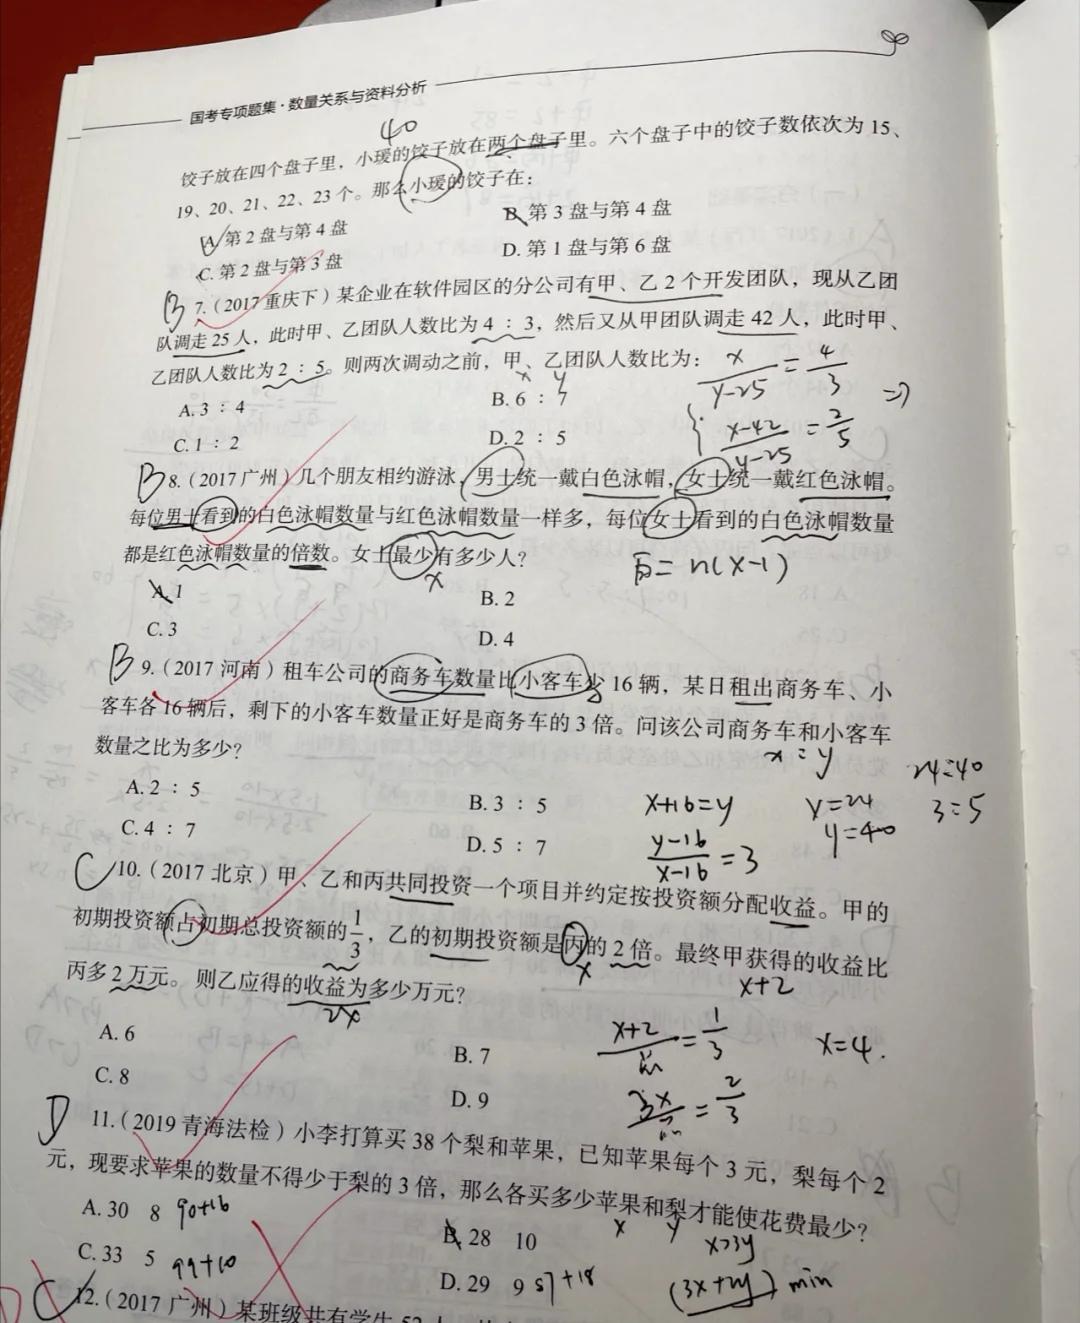 国考专项题集·数量关系与资料分析
40
饺子放在四个盘子里，小瑗的饺子放在两个盘子里。六个盘子中的饺子数依次为 15、
19、20、21、22、23 个。那么小瑗的饺子在：
A. 第 2 盘与第 4 盘
B. 第 3 盘与第 4 盘
C. 第 2 盘与第 3 盘
D. 第 1 盘与第 6 盘
B 7.（2017 重庆下）某企业在软件园区的分公司有甲、乙 2 个开发团队，现从乙团
队调走 25 人，此时甲、乙团队人数比为 4 : 3，然后又从甲团队调走 42 人，此时甲、
乙团队人数比为 2 : 5。则两次调动之前，甲、乙团队人数比为：
x y
x/(y-25) = 4/3 ⇒
(x-42)/(y-25) = 2/5
A. 3 : 4
B. 6 : 7
C. 1 : 2
D. 2 : 5
B 8.（2017 广州）几个朋友相约游泳，男士统一戴白色泳帽，女士统一戴红色泳帽。
每位男士看到的白色泳帽数量与红色泳帽数量一样多，每位女士看到的白色泳帽数量
都是红色泳帽数量的倍数。女士最少有多少人？
x
= n(x-1)
A. 1
B. 2
C. 3
D. 4
B 9.（2017 河南）租车公司的商务车数量比小客车少 16 辆，某日租出商务车、小
客车各 16 辆后，剩下的小客车数量正好是商务车的 3 倍。问该公司商务车和小客车
数量之比为多少？
x : y
24:40
A. 2 : 5
B. 3 : 5
x+16=y
x=24
3:5
C. 4 : 7
D. 5 : 7
(y-16)/(x-16) = 3
y=40
C 10.（2017 北京）甲、乙和丙共同投资一个项目并约定按投资额分配收益。甲的
初期投资额占初期总投资额的 1/3，乙的初期投资额是丙的 2 倍。最终甲获得的收益比
x
x+2
丙多 2 万元。则乙应得的收益为多少万元？
2x
A. 6
B. 7
x=4.
C. 8
D. 9
D 11.（2019 青海法检）小李打算买 38 个梨和苹果，已知苹果每个 3 元，梨每个 2
元，现要求苹果的数量不得少于梨的 3 倍，那么各买多少苹果和梨才能使花费最少？
x y
x≥3y
A. 30 8 90+16
B. 28 10
C. 33 5 99+10
D. 29 9 87+18
(3x+2y) min
C 12.（2017 广州）某班级共有学生 52 人